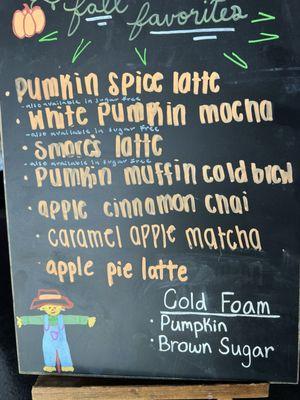 fall
favorites
• Pumpkin spice latte
-also available in sugar free
• White Pumpkin mocha
-also available in sugar free
• Smores latte
-also available in sugar free
• Pumpkin muffin cold brew
• apple cinnamon chai
• caramel apple matcha
• apple pie latte
Cold Foam
• Pumpkin
• Brown Sugar